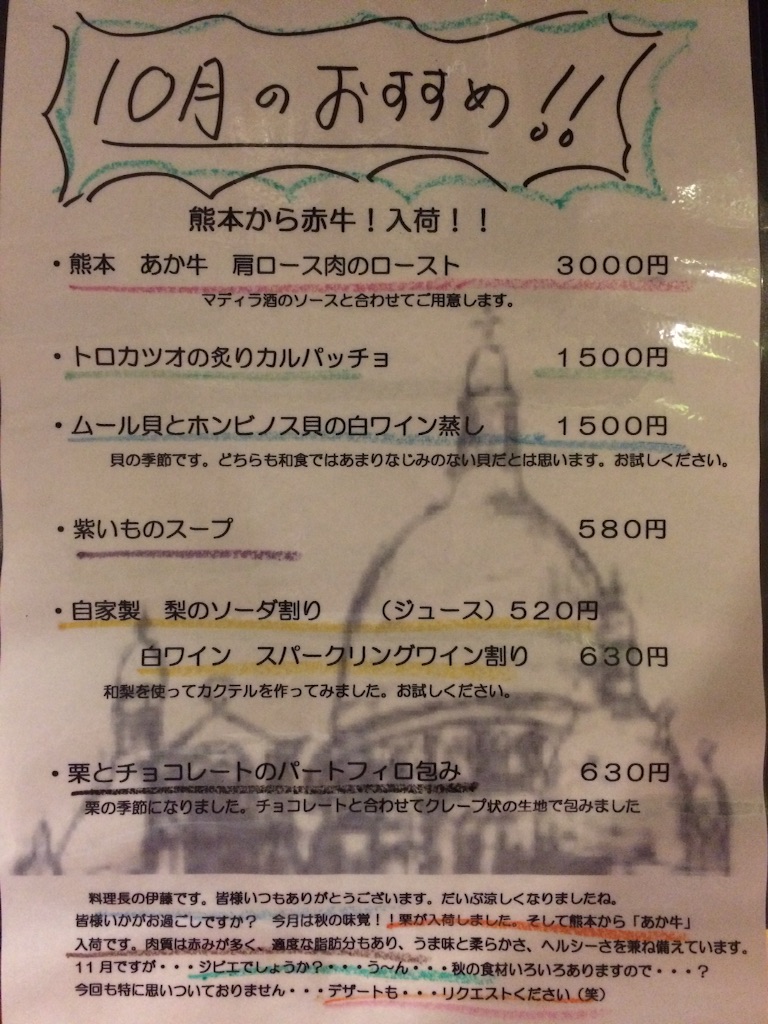 10月のおすすめ!!
熊本から赤牛!入荷!!
・熊本 あか牛 肩ロース肉のロースト 3000円
マディラ酒のソースと合わせてご用意します。
・トロカツオの炙りカルパッチョ 1500円
・ムール貝とホンビノス貝の白ワイン蒸し 1500円
貝の季節です。どちらも和食ではあまりなじみのない貝だとは思います。お試しください。
・紫いものスープ 580円
・自家製 梨のソーダ割り (ジュース)520円
白ワイン スパークリングワイン割り 630円
和梨を使ってカクテルを作ってみました。お試しください。
・栗とチョコレートのパートフィロ包み 630円
栗の季節になりました。チョコレートと合わせてクレープ状の生地で包みました
料理長の伊藤です。皆様いつもありがとうございます。だいぶ涼しくなりましたね。
皆様いかがお過ごしですか? 今月は秋の味覚!!栗が入荷しました。そして熊本から「あか牛」
入荷です。肉質は赤みが多く、適度な脂肪分もあり、うま味と柔らかさ、ヘルシーさを兼ね備えています。
11月ですが・・・ジビエでしょうか?・・・う~ん・・・秋の食材いろいろありますので・・・?
今回も特に思いついておりません・・・デザートも・・・リクエストください(笑)